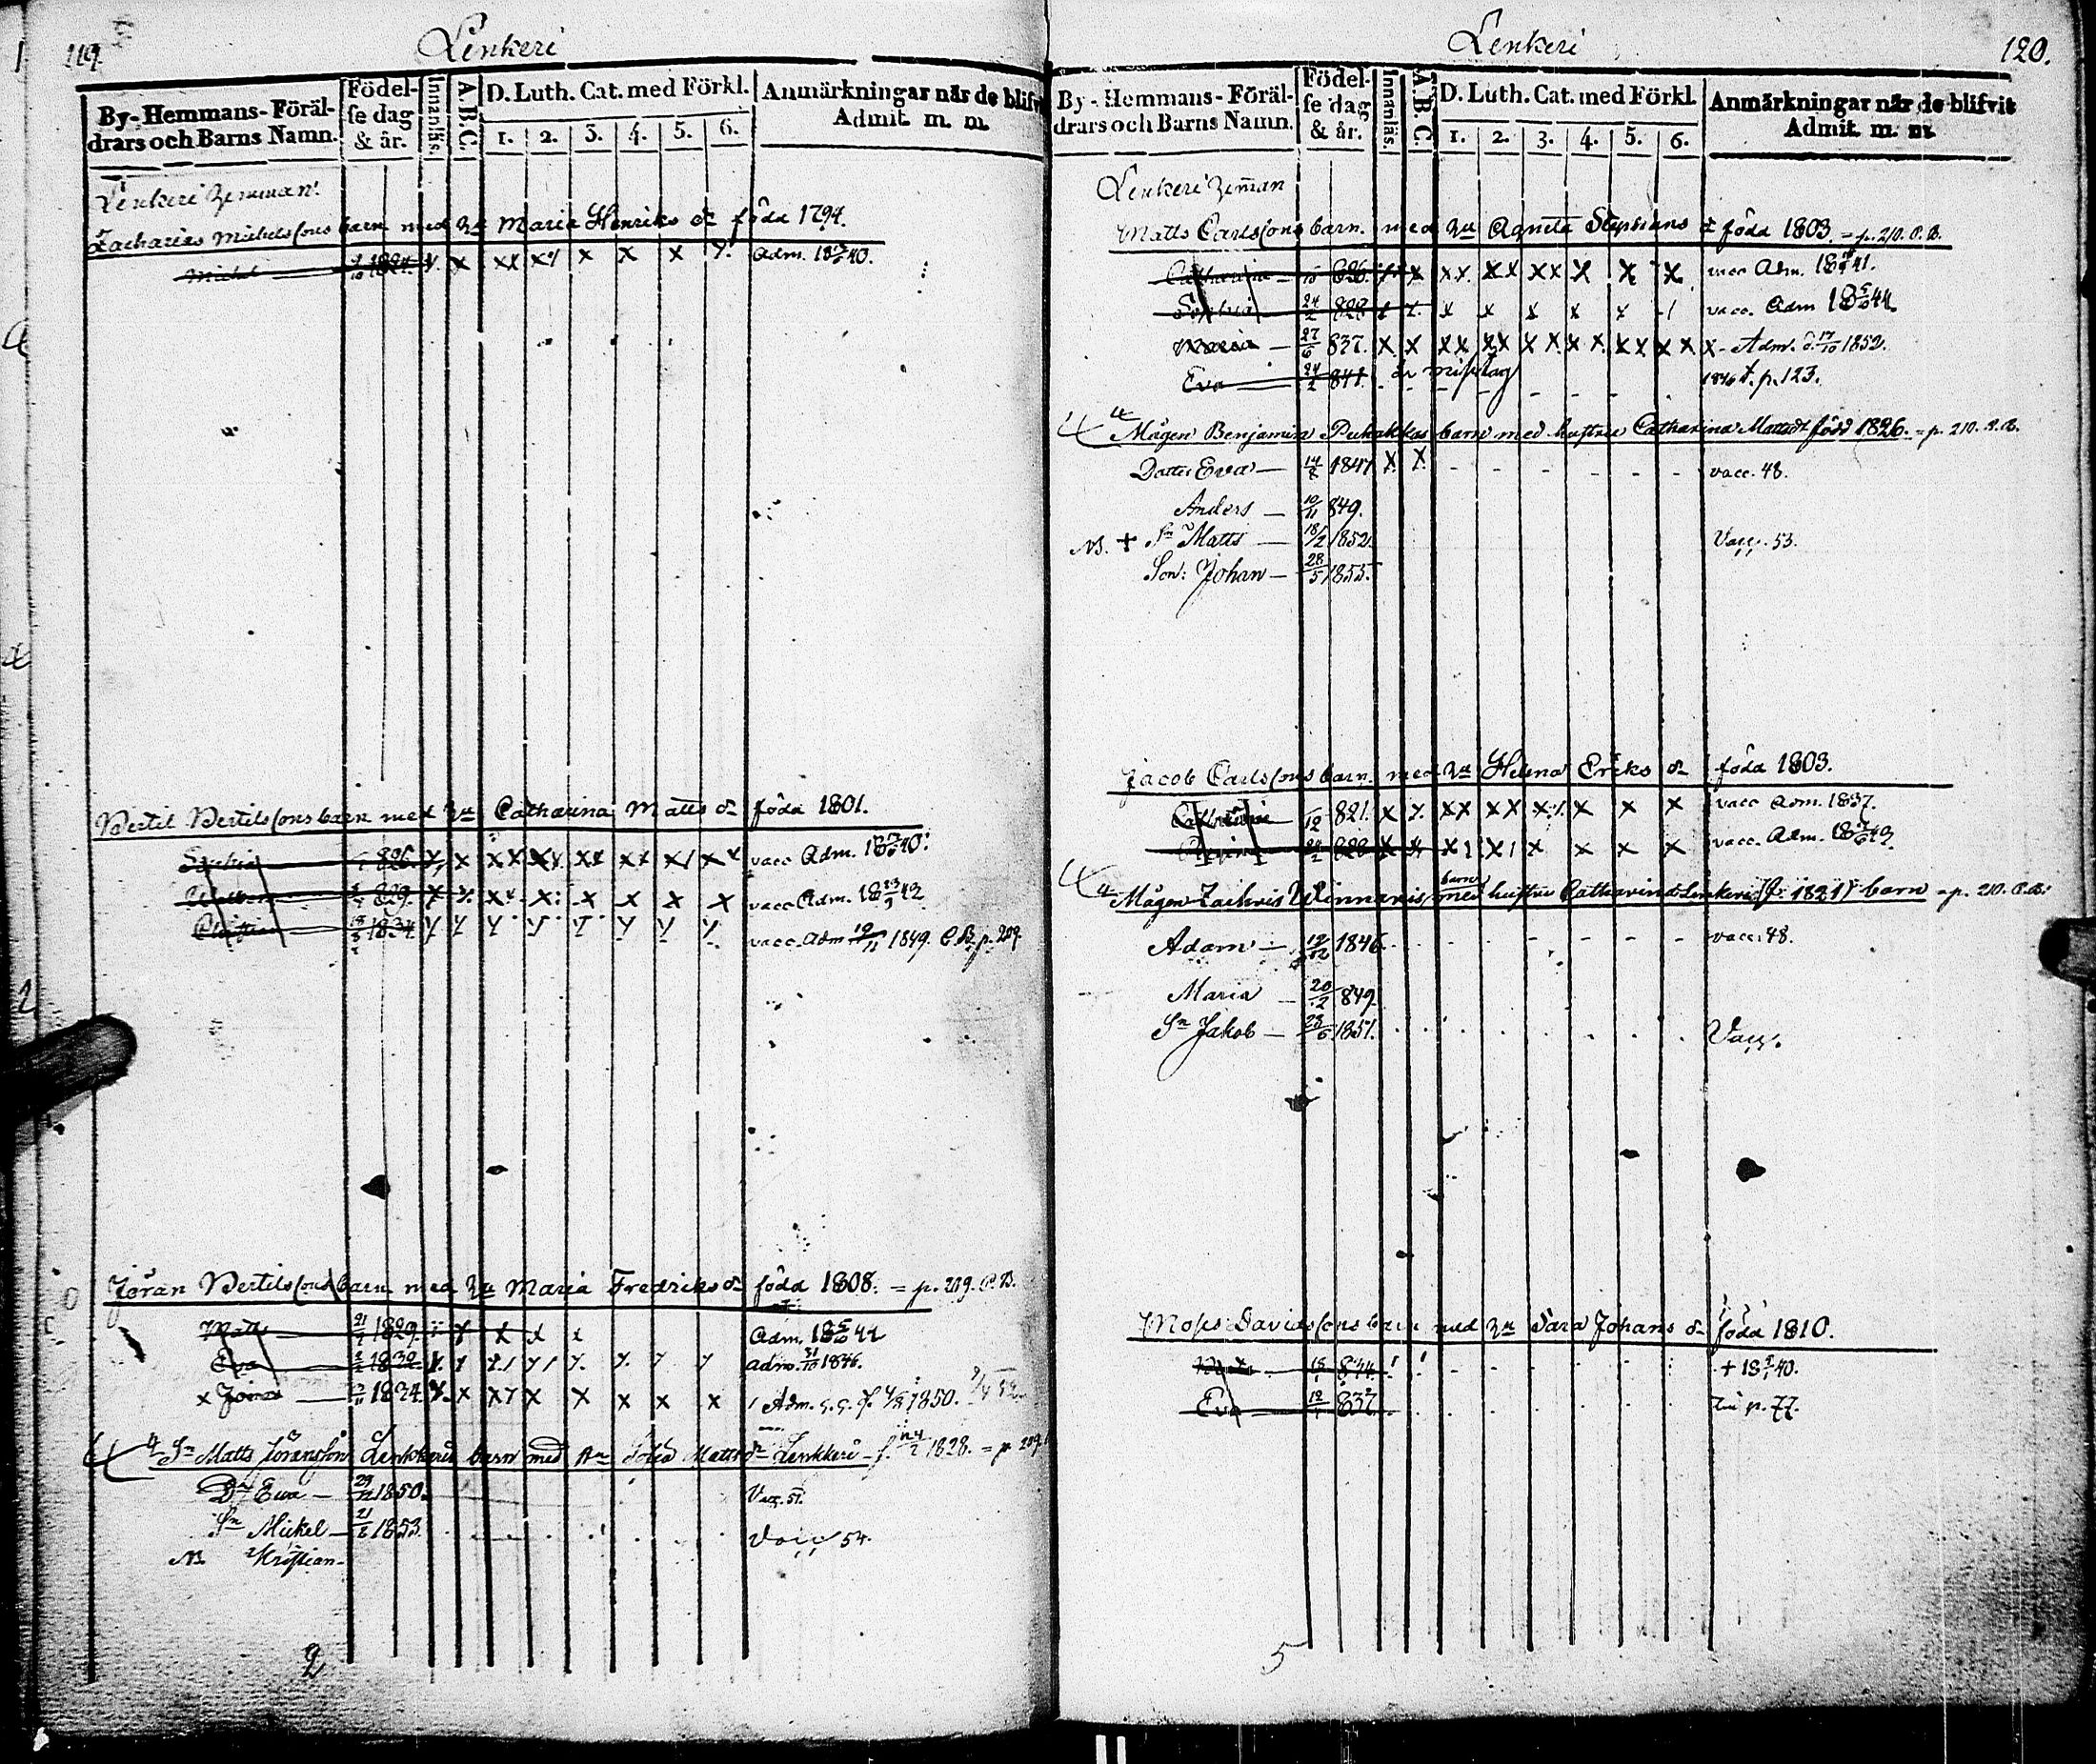 119.
Lenkeri
By-Hemmans-Föräl-
drars och Barns Namn.
Födel-
se dag
& år.
Innanläs.
A.B.C.
D. Luth. Cat. med Förkl.
1. 2. 3. 4. 5. 6.
Anmärkningar när de blifvit
Admit. m. m.
Lenkeri
Zacharias Michelssons barn med hu Maria Henriks dr föda 1794.
Michel 1824. Adm. 1840.
Bertil Bertilssons barn med hu Catharina Matts dr föda 1801.
Sophia 826. vacc Adm. 1840.
829. vacc Adm. 1843
1834. vacc. Adm 1849. C.B. p. 209.
Jöran Bertilssons barn med hu Maria Fredriks dr föda 1808. = p. 209. C.B.
Matts 21 1829. Adm. 1844
Eva 1832. adm. 31/10 1846.
x Jöran 1834. Adm. 1850.
Sn Matts Jöransson Lenkkeris barn med Matts dr Lenkkeri f. 1828. = p. 209.
Dr Eva — 1850. Vacc. 51.
Sn Mickel — 21 1853. Vacc 54.
NB. Kristian
2
Lenkeri
120.
By-Hemmans-Föräl-
drars och Barns Namn.
Födel-
se dag
& år.
Innanläs
A.B.C.
D. Luth. Cat. med Förkl.
1. 2. 3. 4. 5. 6.
Anmärkningar när de blifvit
Admit. m. m.
Lenkeri
Matts Carlssons barn med hu Agneta Stephans dr föda 1803. = p. 210. C.B.
Catharina 826. vacc Adm. 1841.
Sophia 24/2 828 vacc. Adm 1844
Maria — 27/6 837. Adm. d. 17/10 1852.
Eva 24/2 841. är misstag 1846 p. 123.
Mågen Benjamin Pukakkas barn med hustru Catharina Matts dr född 1826. = p. 210. C.B.
Dotter Eva — 1847 vacc. 48.
Anders — 10/11 849.
NB. + Sn Matts — 18/2 1852. Vacc. 53.
Son: Johan — 28/5 1855.
Jacob Carlssons barn med hu Helena Eriks dr föda 1803.
Catharina 821. vacc Adm. 1837.
828 vacc. Adm. 1843
Mågen Zachris Winnaris barn med hustru Catharina Lenkeri (f. 1821) barn = p. 210. C.B.
Adam — 19/12 1846. vacc. 48.
Maria — 20/12 849
Sn Jakob — 1851. Vacc.
Moses Davidssons barn med hu Sara Johans dr föda 1810.
834 + 1840.
Eva 837. p. 77.
5